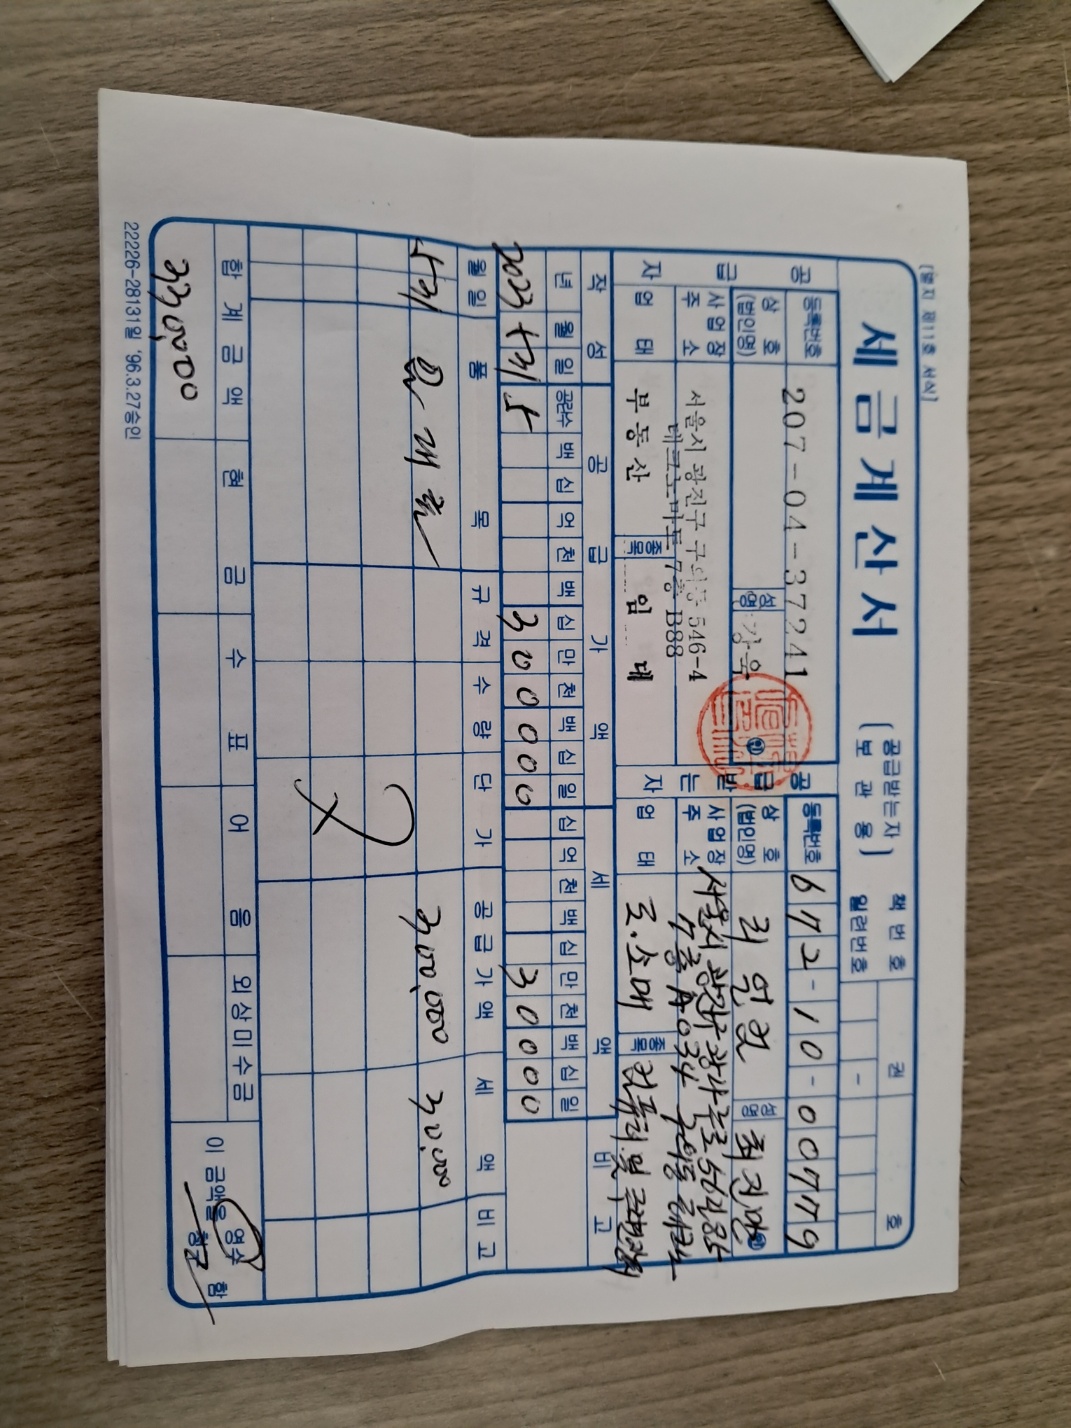 [별지 제11호 서식]
세금계산서 (공급받는자 보관용)
책번호 권 호
일련번호 -
공급자
등록번호 207-04-37241
상호(법인명) 성명 강욱 ㊞
사업장주소 서울시 광진구 구의동 546-4
테크노마트 7층 B88
업태 부동산 종목 임대
공급받는자
등록번호 672-10-00779
상호(법인명) 성명 ㊞
사업장주소 서울시 광진구 광나루로56길 85
7층 구의동
업태 도.소매 종목 컴퓨터 및
작성 공급가액 세액 비고
년 월 일 공란수 백 십 억 천 백 십 만 천 백 십 일 십 억 천 백 십 만 천 백 십 일
2023 5 31 5 300000 30000
월 일 품목 규격 수량 단가 공급가액 세액 비고
5 31 300,000 30,000
합계금액 현금 수표 어음 외상미수금 이 금액을 영수 청구 함
330,000
22226-28131일 '96.3.27승인